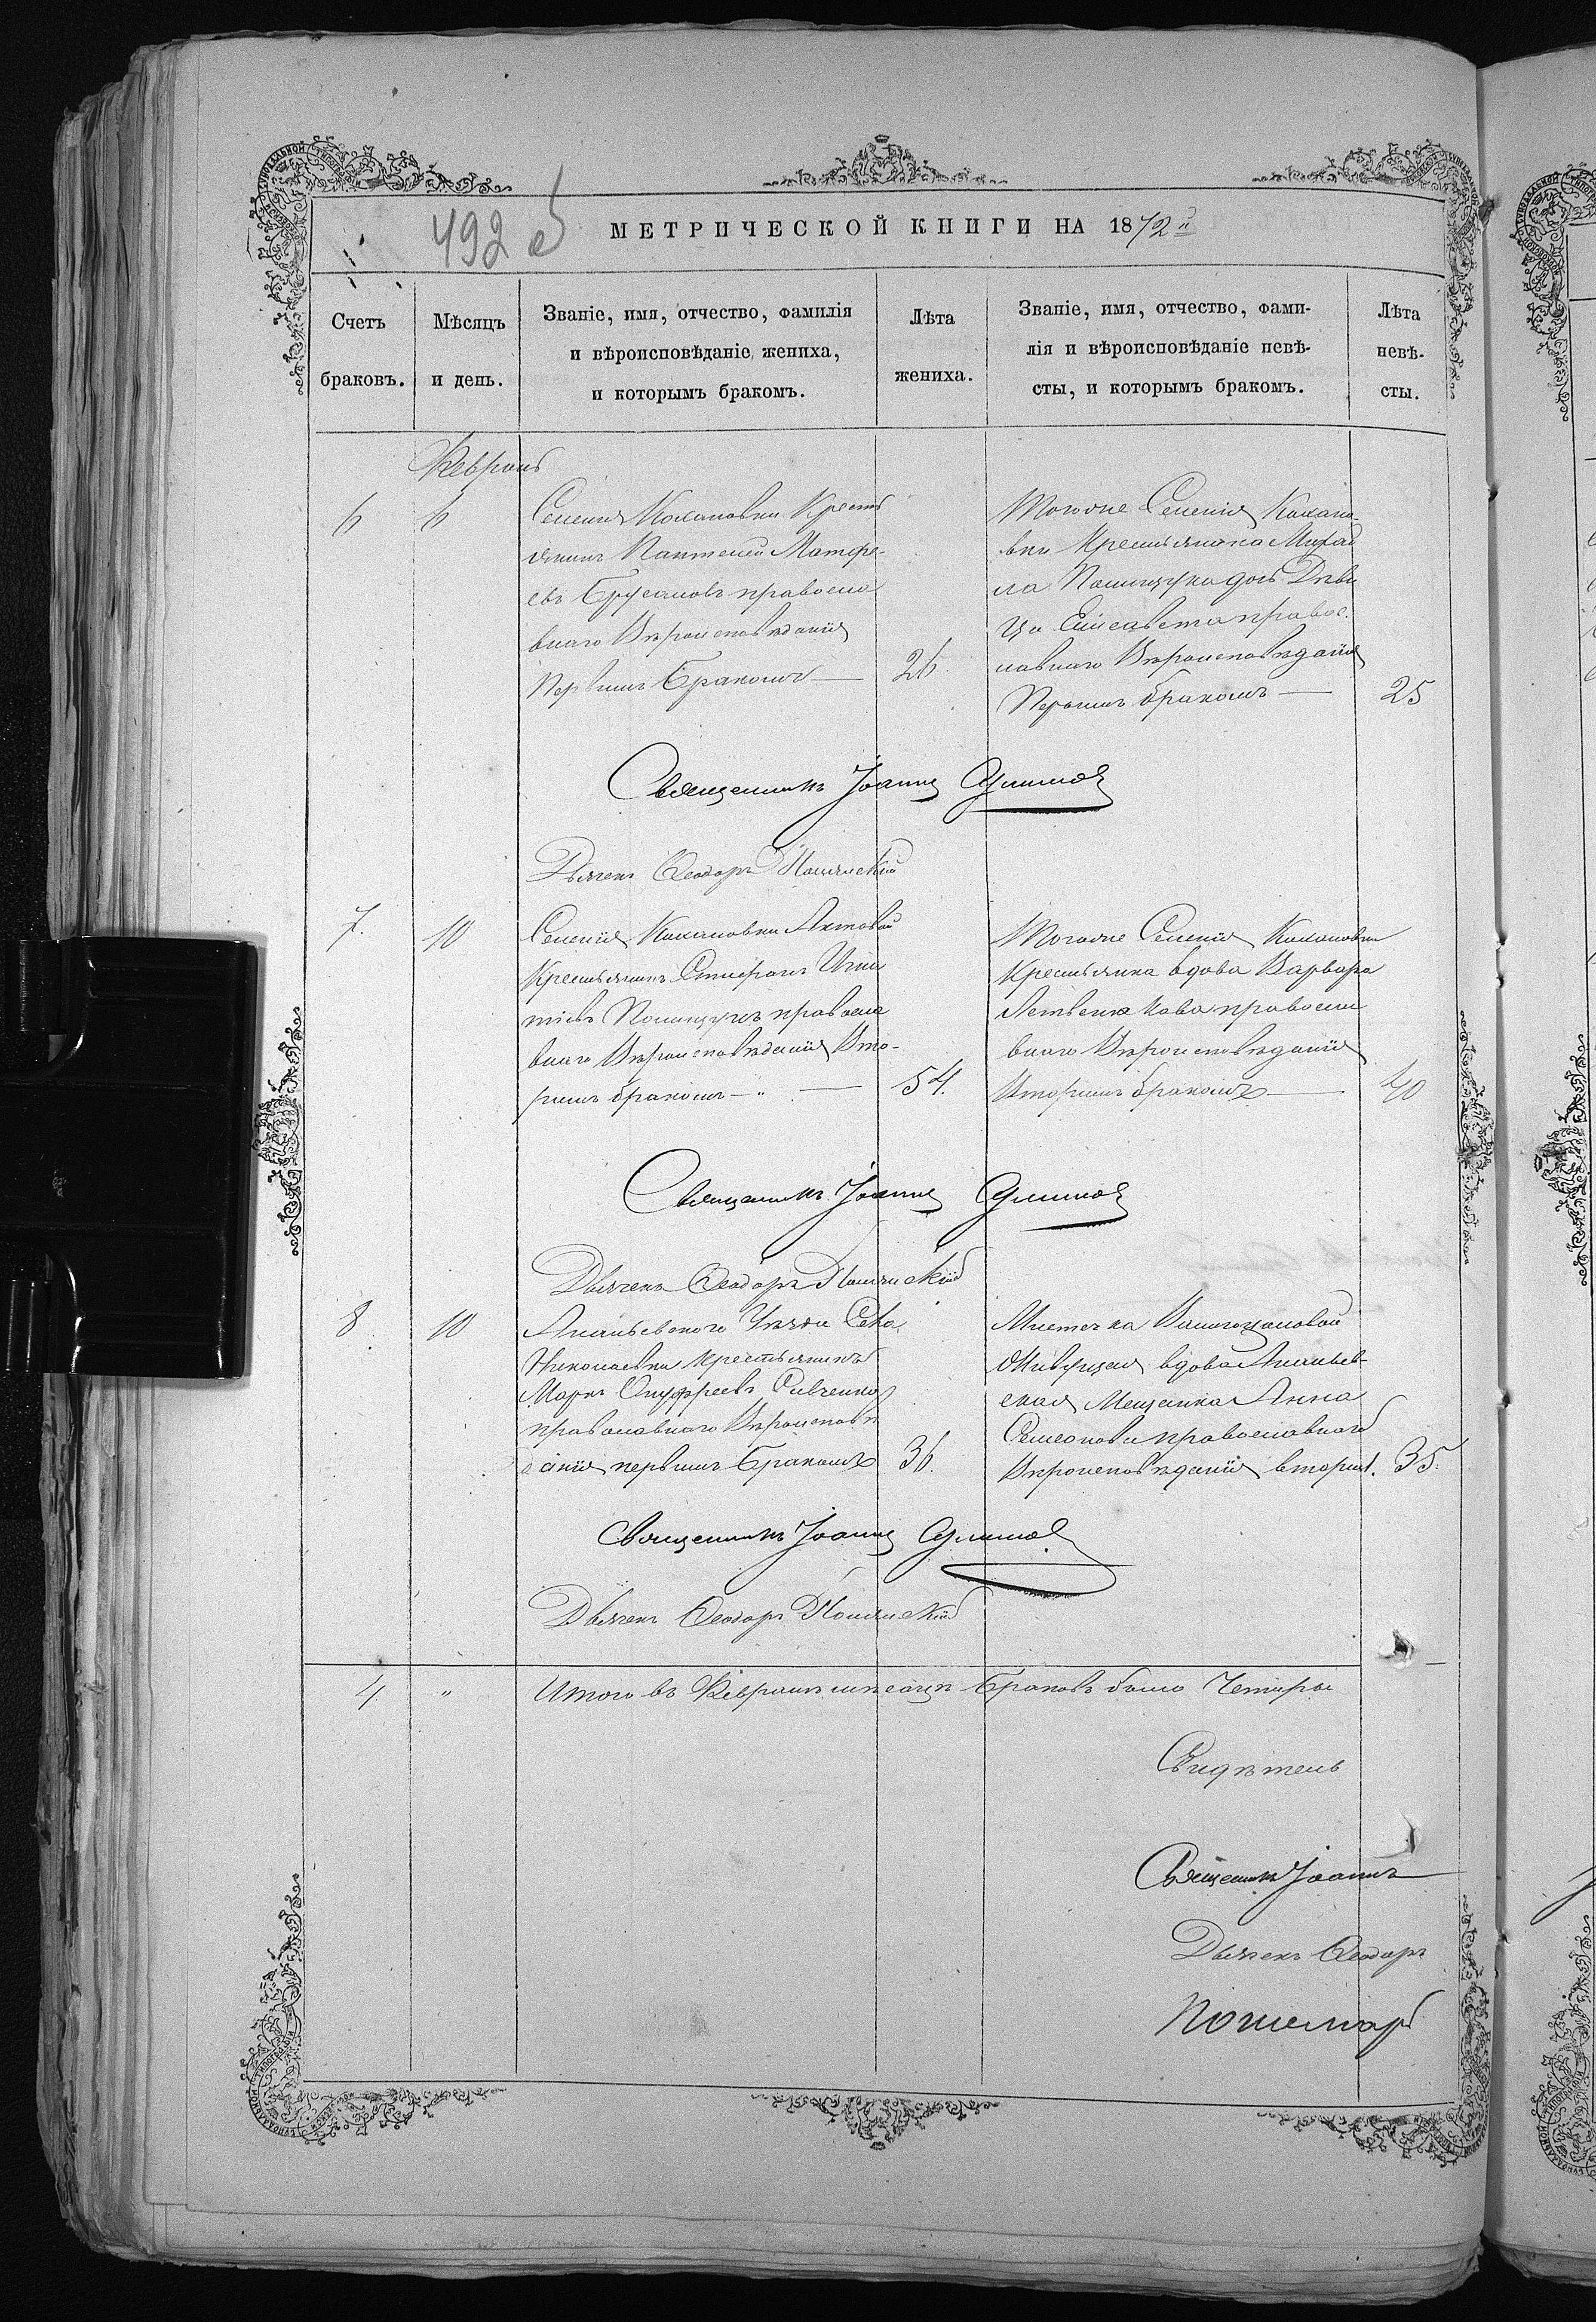 492 об
МЕТРИЧЕСКОЙ КНИГИ НА 1872й
Счетъ браковъ.
Мѣсяцъ и день.
Званіе, имя, отчество, фамилія
и вѣроисповѣданіе жениха,
и которымъ бракомъ.
Лѣта
жениха.
Званіе, имя, отчество, фами-
лія и вѣроисповѣданіе невѣ-
сты, и которымъ бракомъ.
Лѣта
невѣ-
сты.
Февраль
6
6
Селенія Кохановки Кресть
янинъ Пантелей Матфе-
евъ православ
внаго Вѣроисповѣданія
Первымъ Бракомъ —
26.
Тогоже Селенія Кохано-
вки Крестьянина Михаи
ла Полищука дочь Дѣви
ца Елисавета правос.
лавнаго Вѣроисповѣданія
Первымъ бракомъ —
25
Священникъ Іоаннъ
Дьячекъ Феодоръ
7.
10
Селенія Кохановки
Крестьянинъ Стефанъ Игна
тіевъ Полищукъ правосла
внаго Вѣроисповѣданія Вто-
рымъ бракомъ — " —
54.
Тогоже Селенія Кохановки
Крестьянка вдова Варвара
правосла
внаго Вѣроисповѣданія
Вторымъ бракомъ —
40
Священникъ Іоаннъ
Дьячекъ Феодоръ
8.
10
Ананьевскаго Уѣзда Села
Николаевки крестьянинъ
Маркъ Онуфріевъ
православнаго Вѣроисповѣ
данія первымъ Бракомъ
36.
Мѣстечка
Живущая вдова Ананьев-
ская Мещанка Анна
Семенова православнаго
Вѣроисповѣданія вторым.
35.
Священникъ Іоаннъ
Дьячекъ Феодоръ
4
"
Итого въ Февралѣ мѣсяцѣ Браковъ было Четыре
Священникъ Іоаннъ
Дьячекъ Феодоръ